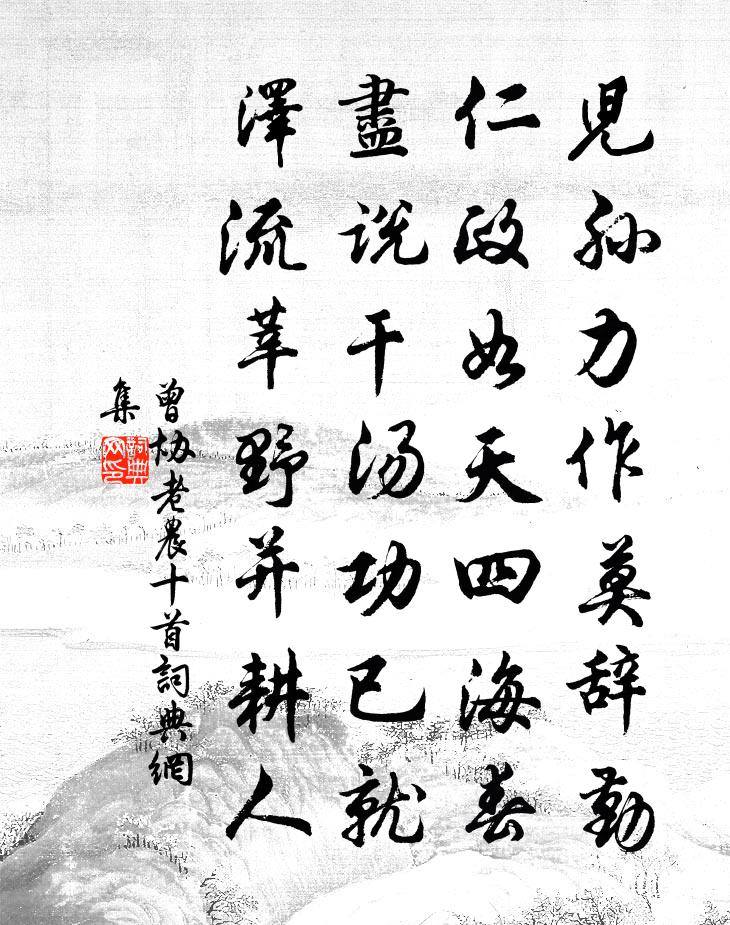 児孙力作莫辞勤
仁政如天四海春
盡说干汤功已就
澤流莘野并耕人
曾协老農十首詞典網
集
詞典
网印